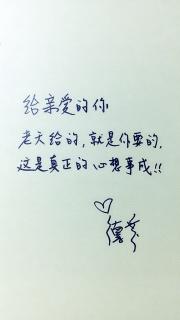 给亲爱的你
老天给的,就是你要的,
这是真正的心想事成!!
德芬